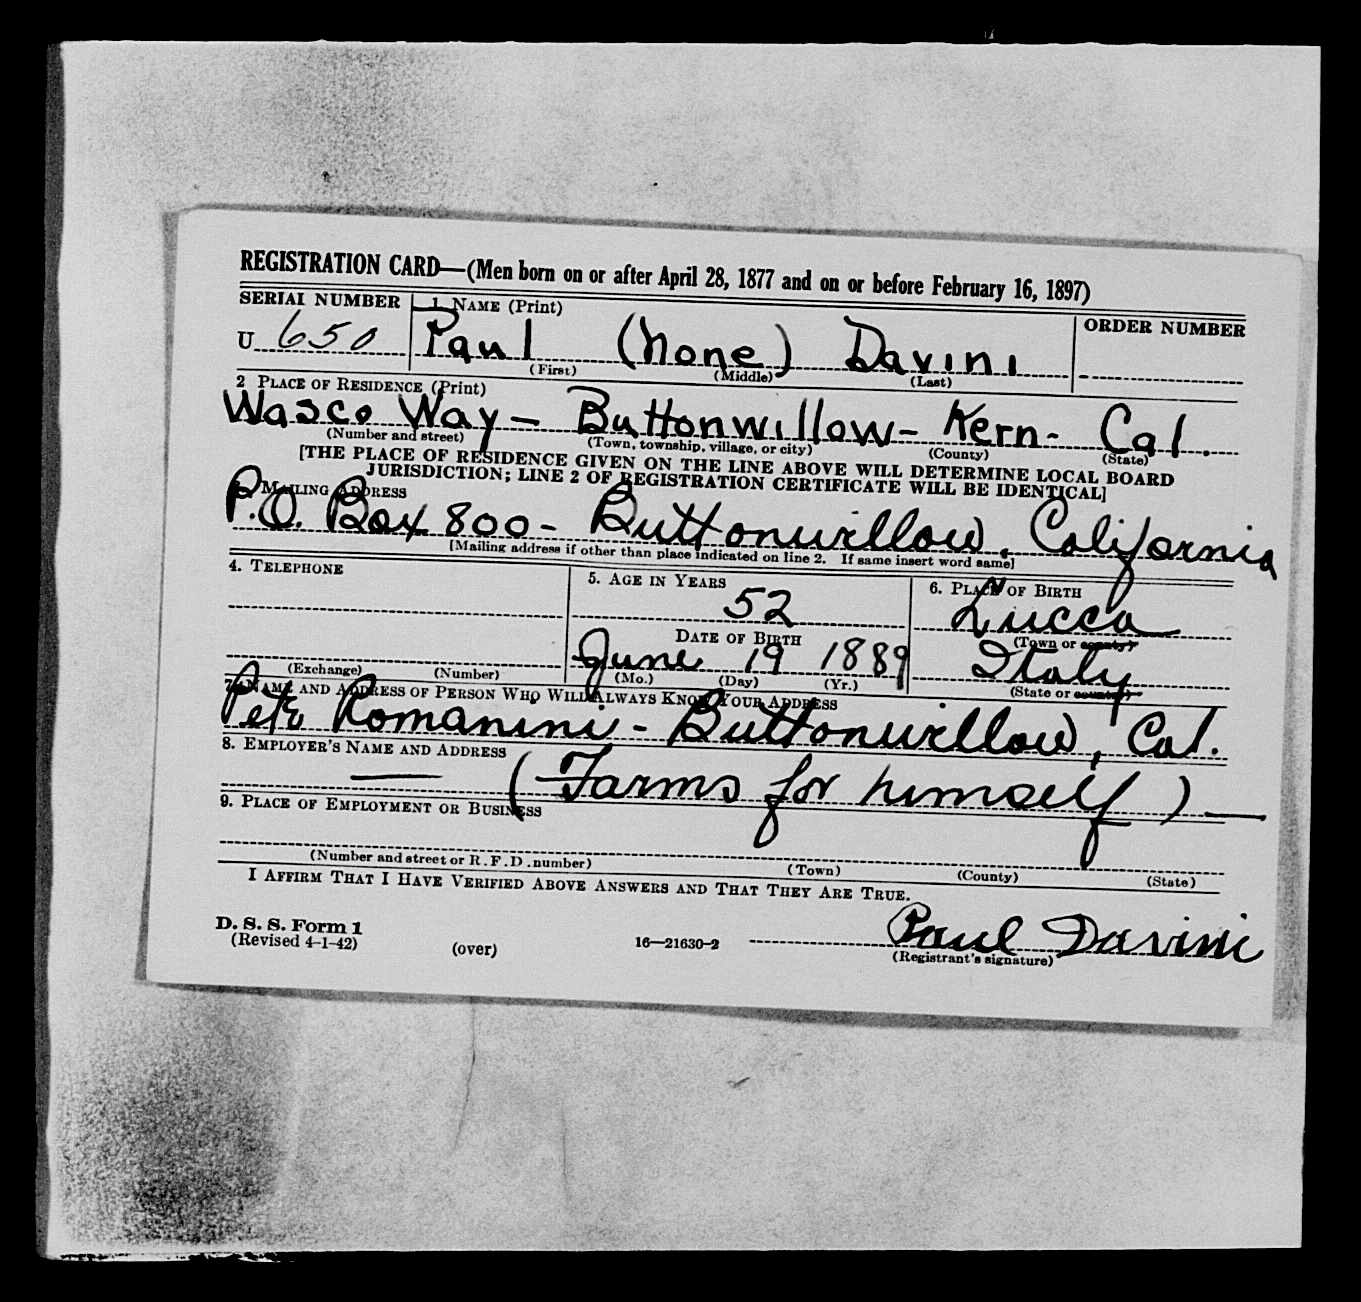 REGISTRATION CARD—(Men born on or after April 28, 1877 and on or before February 16, 1897)
SERIAL NUMBER 1. NAME (Print) ORDER NUMBER
U 650 Paul (None) Davini
(First) (Middle) (Last)
2 PLACE OF RESIDENCE (Print)
Wasco Way - Buttonwillow - Kern - Cal.
(Number and street) (Town, township, village, or city) (County) (State)
[THE PLACE OF RESIDENCE GIVEN ON THE LINE ABOVE WILL DETERMINE LOCAL BOARD
JURISDICTION; LINE 2 OF REGISTRATION CERTIFICATE WILL BE IDENTICAL]
MAILING ADDRESS
P.O. Box 800 - Buttonwillow, California
[Mailing address if other than place indicated on line 2. If same insert word same]
4. TELEPHONE 5. AGE IN YEARS 6. PLACE OF BIRTH
52 Lucca
DATE OF BIRTH (Town or county)
June 19 1889 Italy
(Exchange) (Number) (Mo.) (Day) (Yr.) (State or country)
7. NAME AND ADDRESS OF PERSON WHO WILL ALWAYS KNOW YOUR ADDRESS
Pete Romanini - Buttonwillow, Cal.
8. EMPLOYER'S NAME AND ADDRESS
— (Farms for himself) —
9. PLACE OF EMPLOYMENT OR BUSINESS
(Number and street or R.F.D. number) (Town) (County) (State)
I AFFIRM THAT I HAVE VERIFIED ABOVE ANSWERS AND THAT THEY ARE TRUE.
D. S. S. Form 1
(Revised 4-1-42) (over) 16—21630-2 Paul Davini
(Registrant's signature)